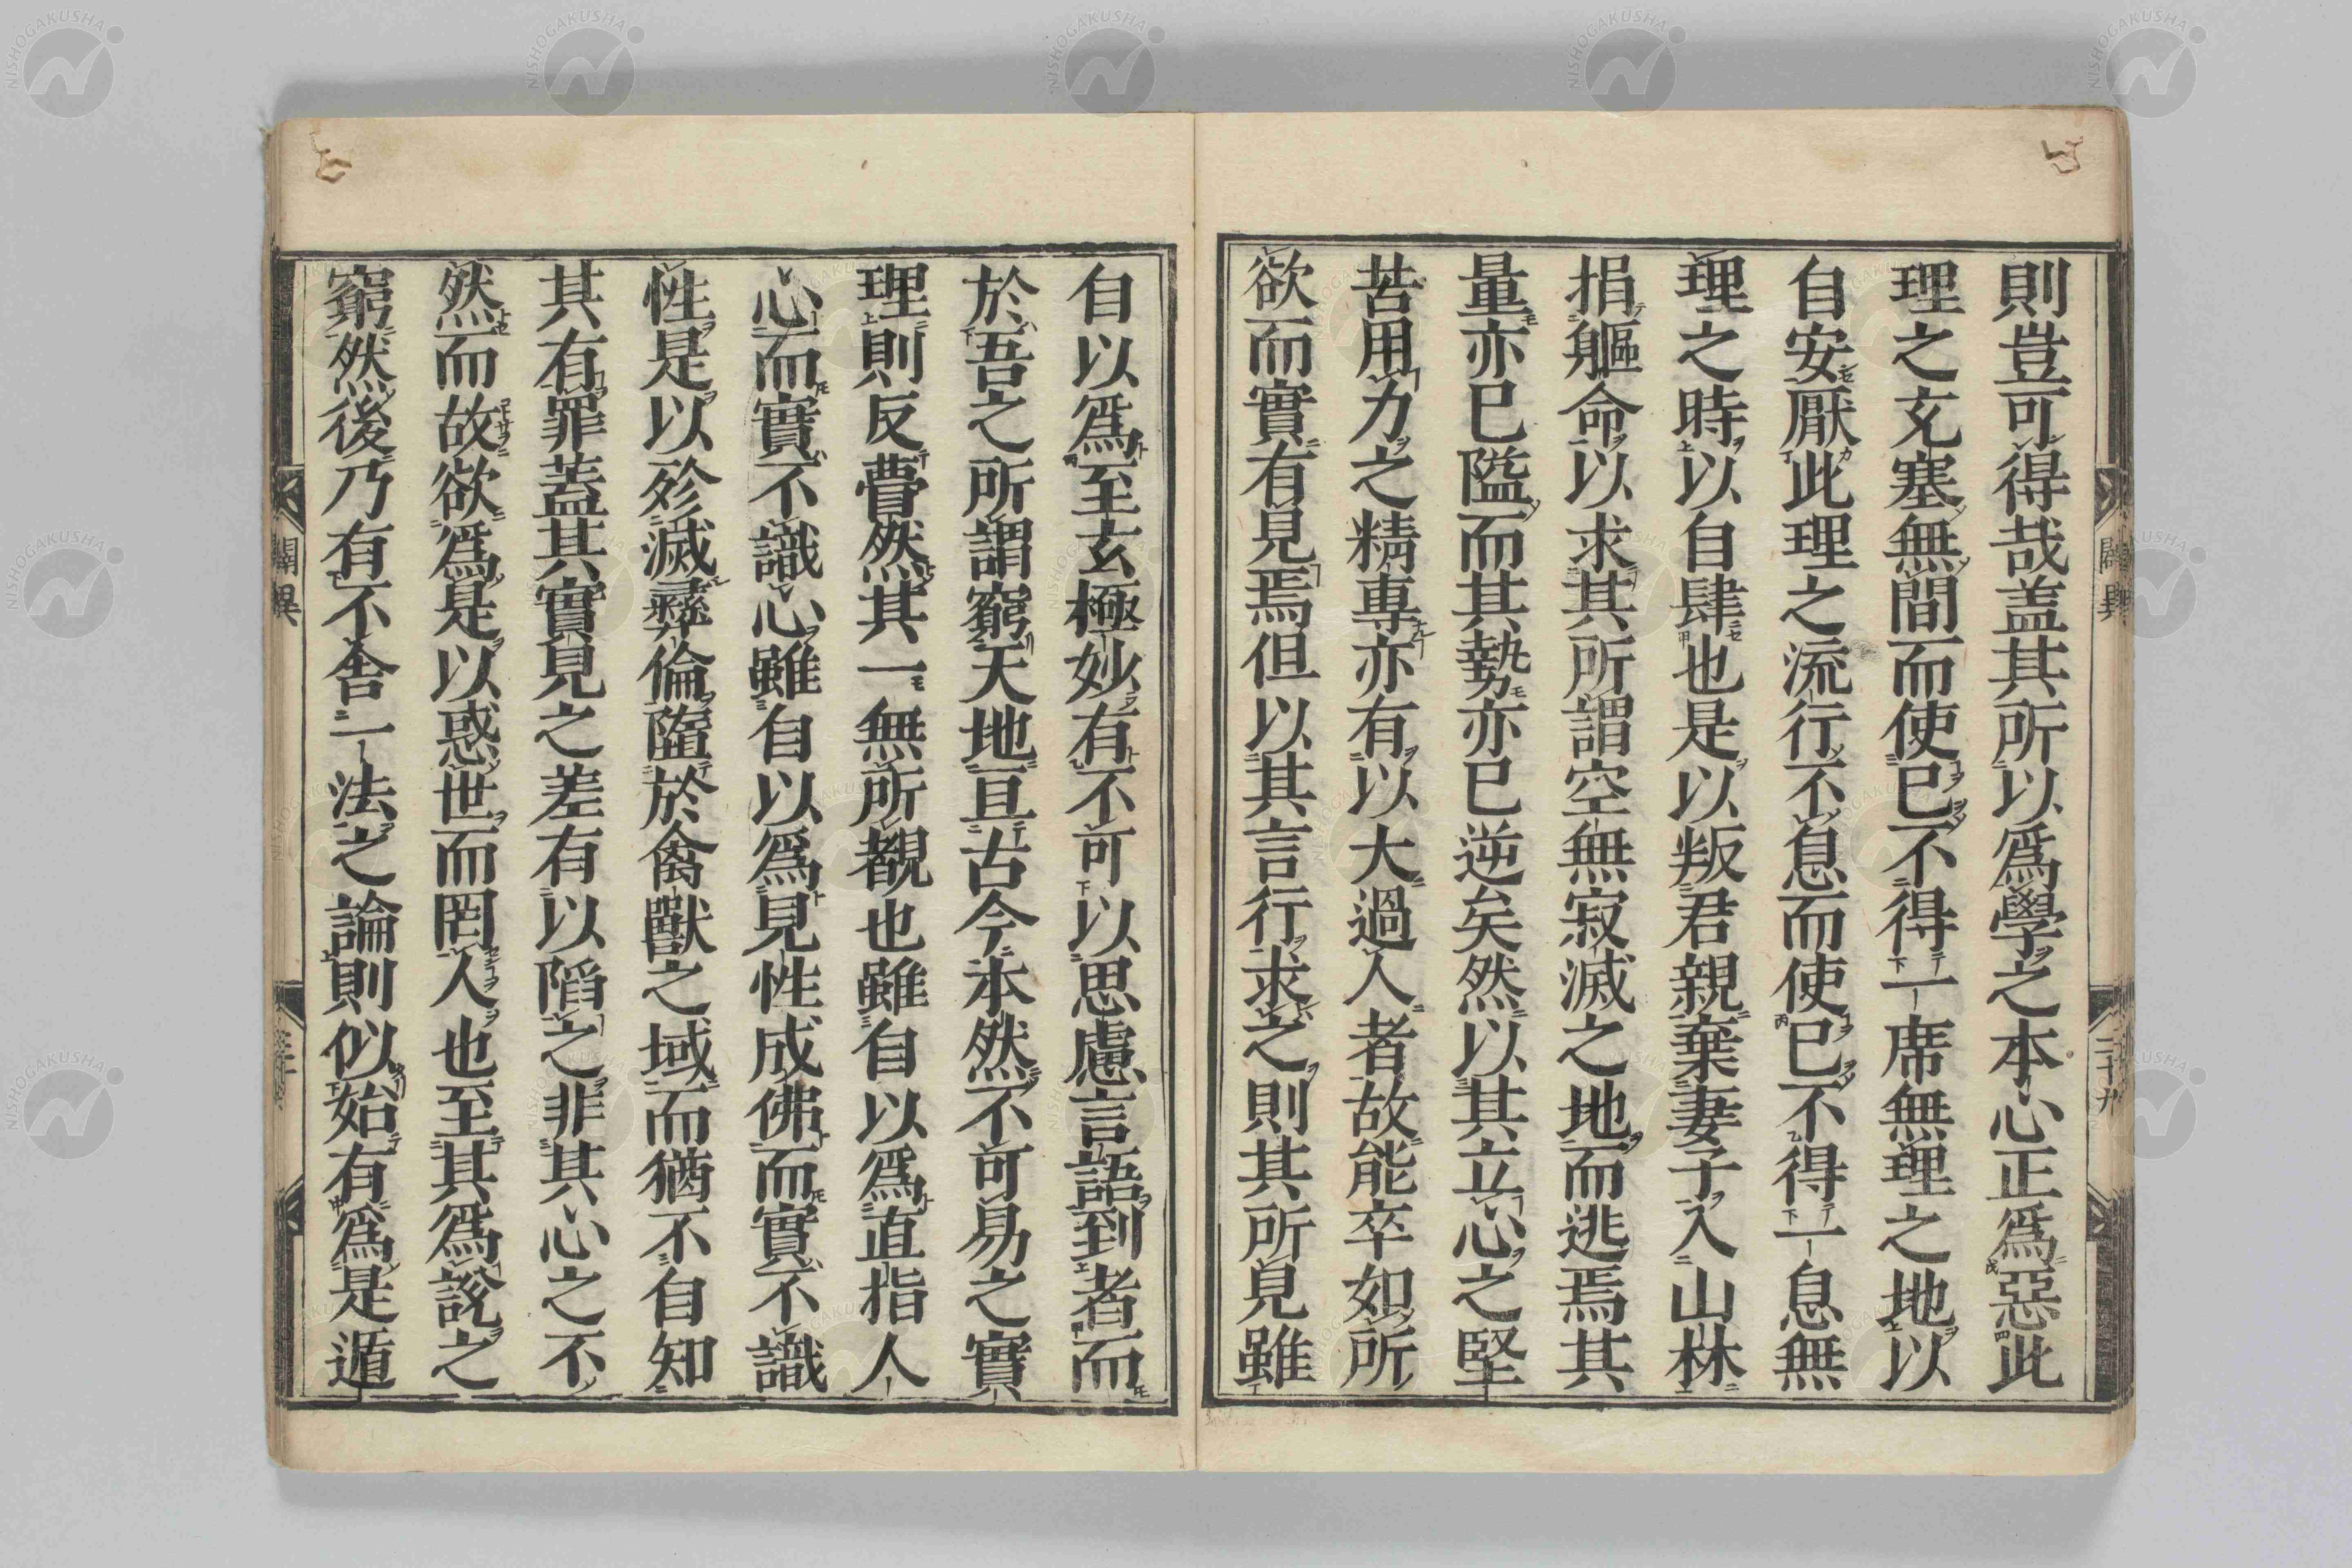 則豈可得哉蓋其所以爲學之本心正爲惡此
理之充塞無間而使已不得一席無理之地以
自安厭此理之流行不息而使已不得一息無
理之時以自肆也是以叛君親棄妻子入山林
捐軀命以求其所謂空無寂滅之地而逃焉其
量亦已隘而其勢亦已逆矣然以其立心之堅
苦用力之精專亦有以大過人者故能卒如所
欲而實有見焉但以其言行求之則其所見雖
自以爲至玄極妙有不可以思慮言語到者而
於吾之所謂窮天地亘古今本然不可易之實
理則反瞢然其一無所覩也雖自以爲直指人
心而實不識心雖自以爲見性成佛而實不識
性是以殄滅彝倫墮於禽獸之域而猶不自知
其有罪蓋其實見之差有以陷之非其心之不
然而故欲爲是以惑世而罔人也至其爲說之
窮然後乃有不舍一法之論則似始有爲是遁
闢異
二十九
闢異
NISHOGAKUSHA